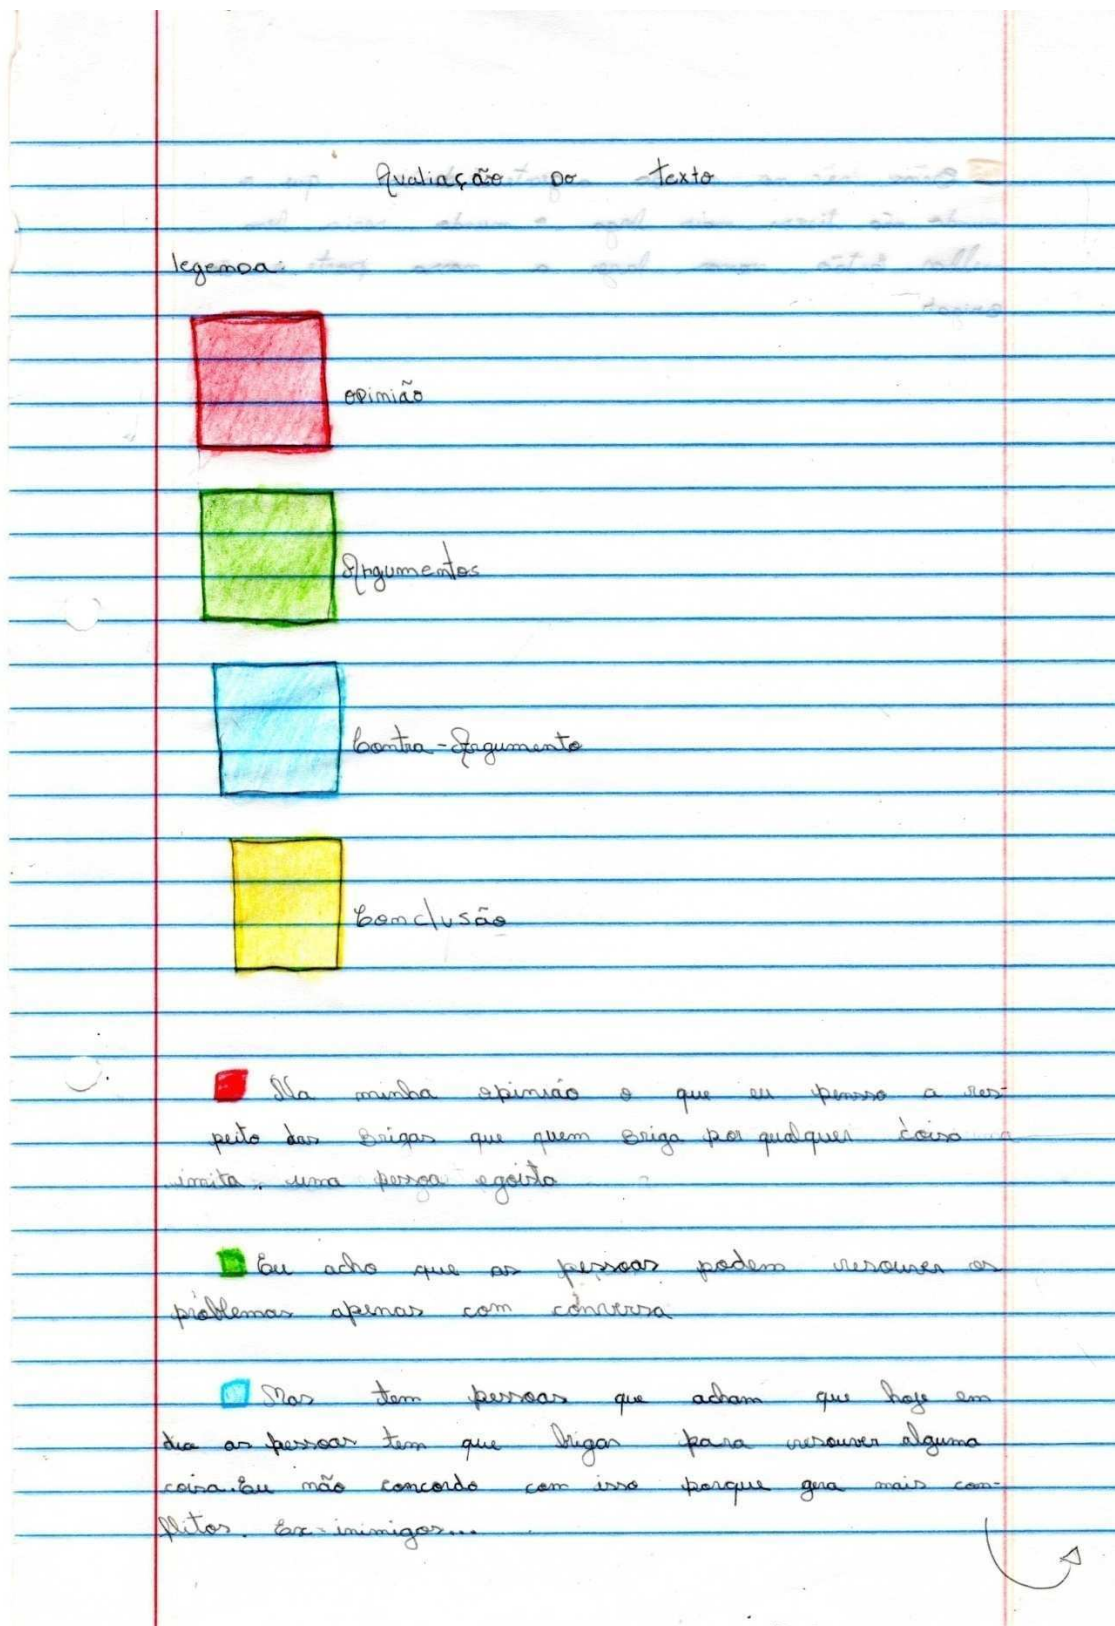 Avaliação Do texto
legenda:
opinião
Argumentos
Contra-Argumento
Conclusão
Na minha opinião o que eu pensso a res-
peito das Brigas que quem Briga por qualquer coisa
imita uma pessoa egoista
Eu acho que as pessoas podem resouver os
problemas apenas com conversa
Mas tem pessoas que acham que hoje em
dia as pessoas tem que brigar para resouver alguma
coisa. Eu não concordo com isso porque gera mais con-
flitos. Ex-inimigos...